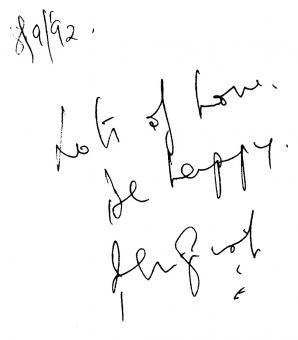 8/9/92.
Lots of love.
Be happy.